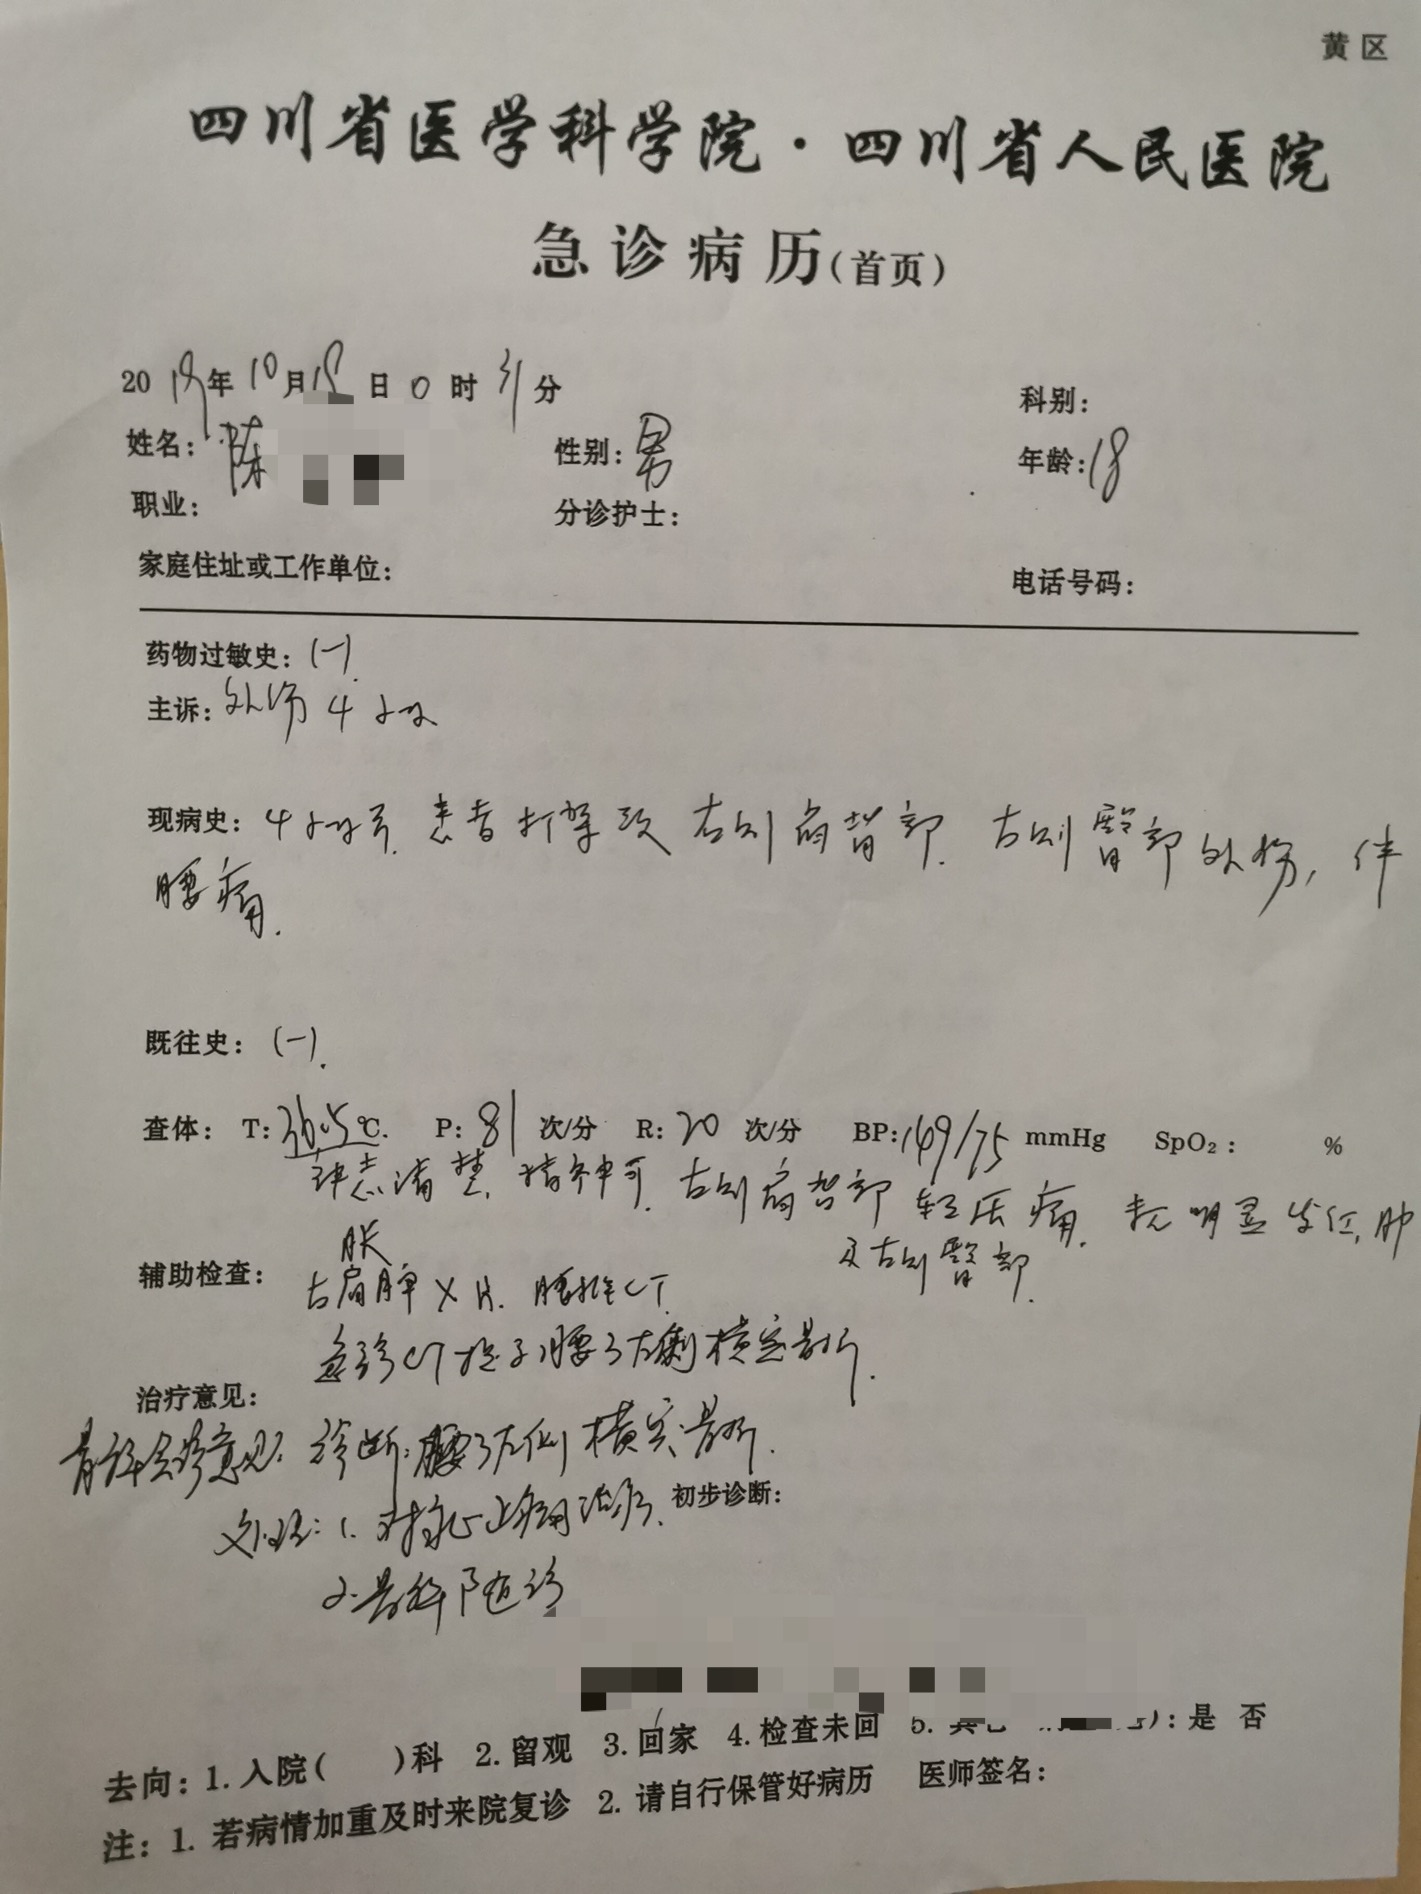 黄区
四川省医学科学院·四川省人民医院
急诊病历(首页)
2019年10月18日0时31分
科别:
姓名:陈 性别:男 年龄:18
职业: 分诊护士:
家庭住址或工作单位: 电话号码:
药物过敏史:(-).
主诉:外伤4小时
现病史:4小时前,患者打架致右侧肩背部、右侧臀部外伤,伴
腰痛.
既往史:(-).
查体: T:36.5℃. P:81次/分 R:20次/分 BP:149/75mmHg SpO₂: %
神志清楚,精神可,右侧肩背部轻压痛,无明显发红,肿
胀 及右侧臀部.
辅助检查: 右肩胛X片.腰椎CT
急诊CT提示腰3左侧横突骨折.
治疗意见:
骨科会诊意见:诊断:腰3左侧横突骨折.
处理:1.对症止痛治疗. 初步诊断:
2.骨科随诊
去向:1.入院( )科 2.留观 3.回家 4.检查未回 5.其它 ):是 否
注:1.若病情加重及时来院复诊 2.请自行保管好病历 医师签名: